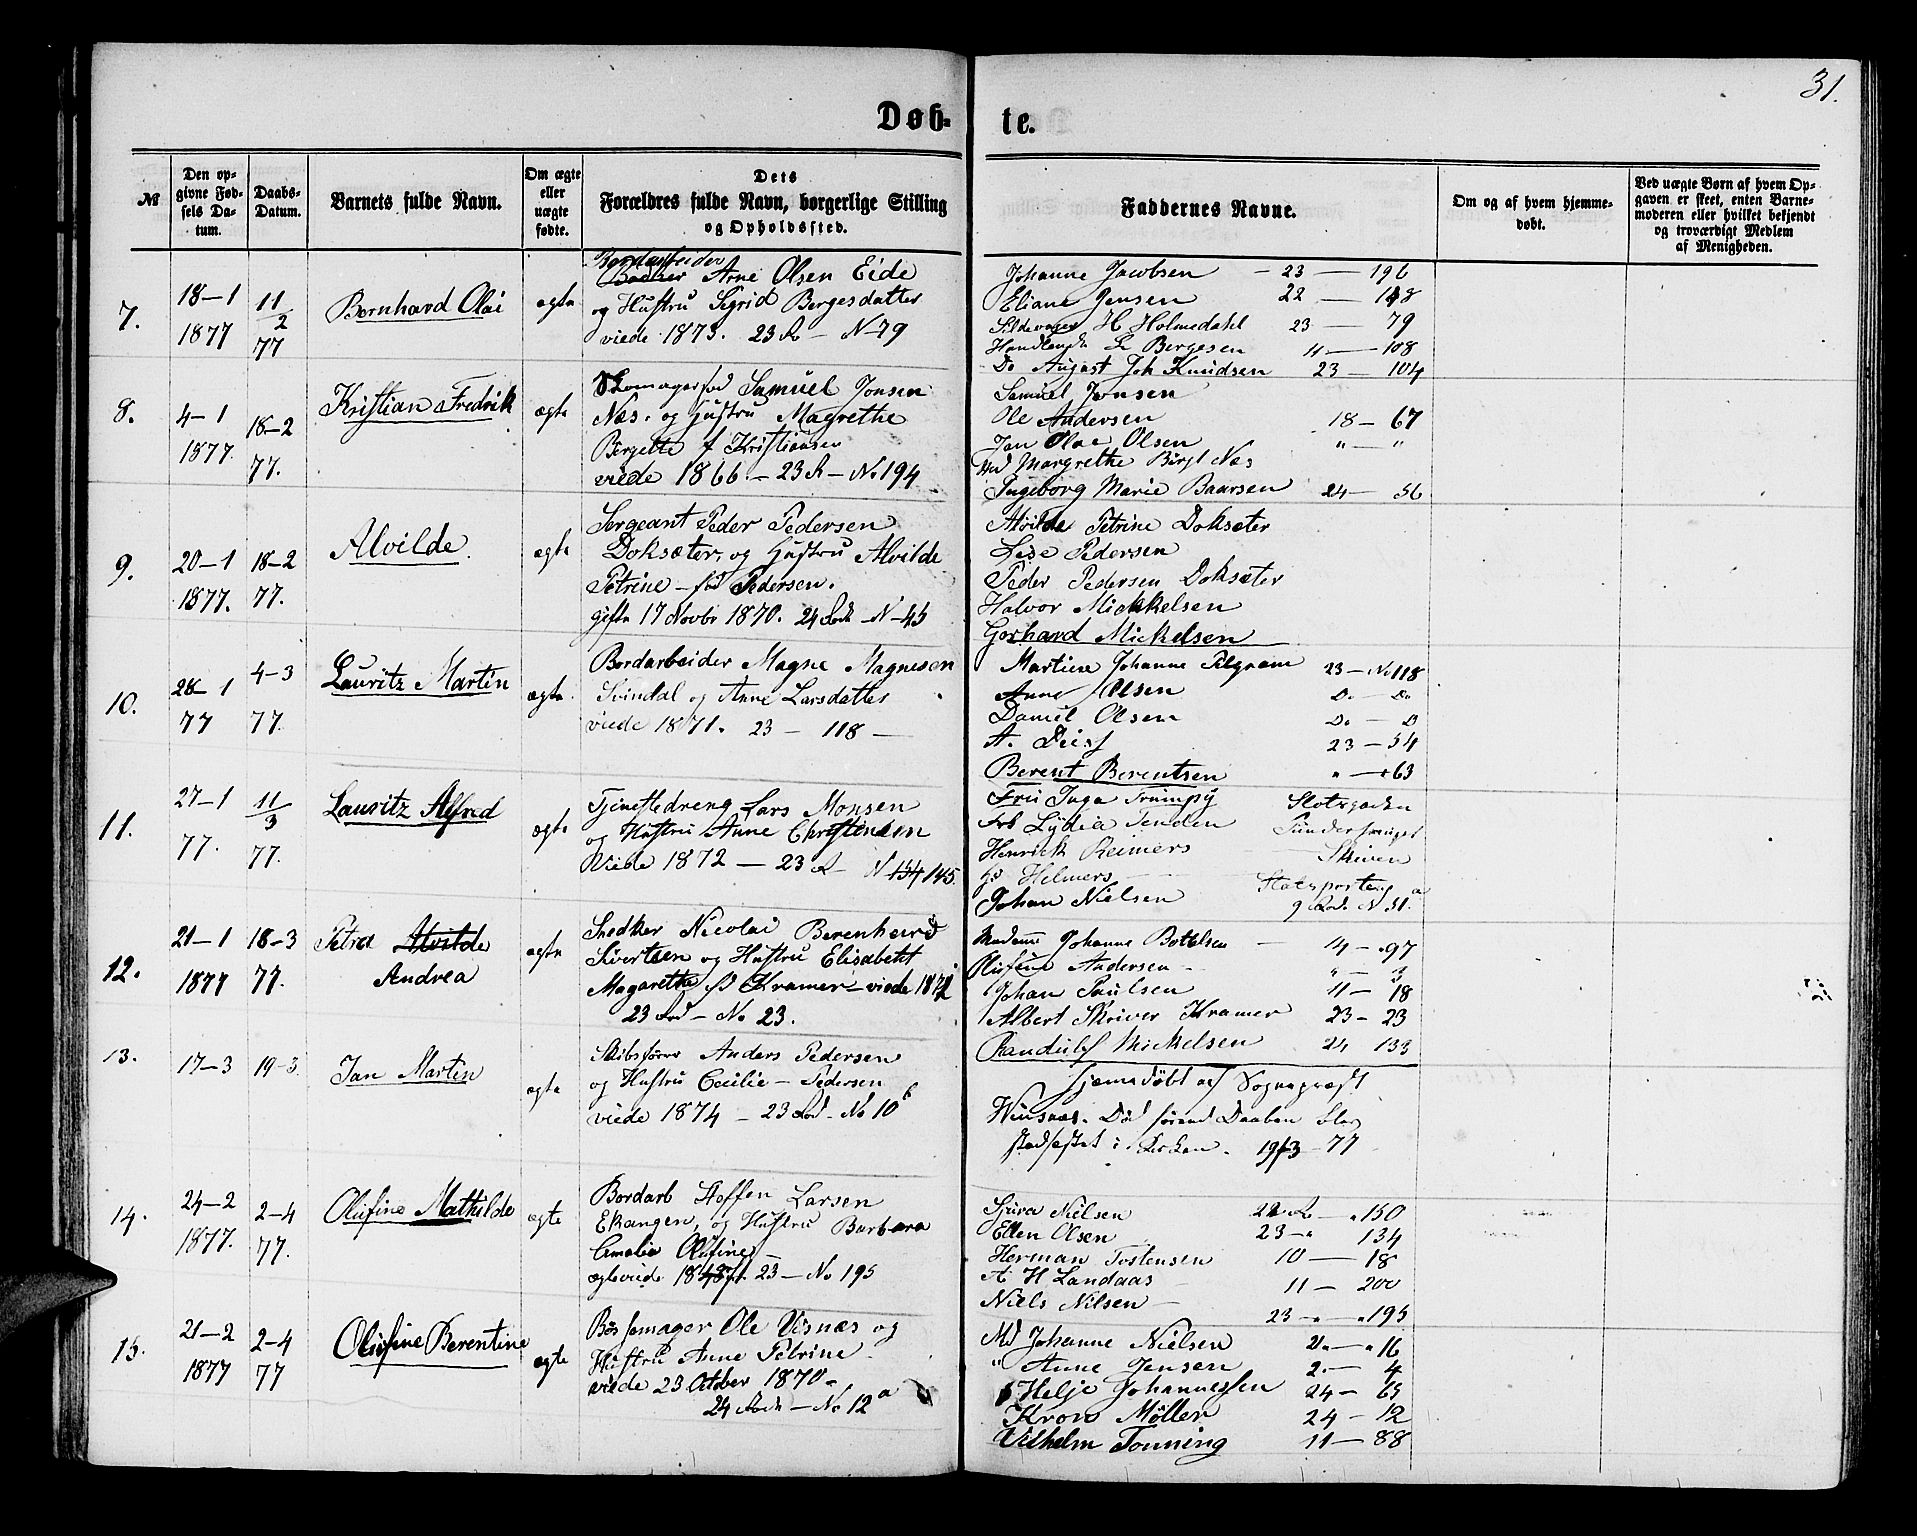 31.
Døb-
te.
№
Den op-
givne Fød-
sels Da-
tum.
Daabs-
Datum.
Barnets fulde Navn.
Om ægte
eller
uægte
fødte.
Dets
Forældres fulde Navn, borgerlige Stilling
og Opholdssted.
Faddernes Navne.
Om og af hvem hjemme-
døbt.
Ved uægte Børn af hvem Op-
gaven er skeet, enten Barne-
moderen eller hvilket bekjendt
og troværdigt Medlem
af Menigheden.
7.
18-1
1877
11/2
77
Bernhard Olai
ægte
Bordarbeider
Arne Olsen Eide
og Hustru Sigrid Bergesdatter
viede 1873. 23 R - N 79
Johanne Jacobsen - 23 - 196
Eliane Jensen 22 - 148
H Holmedahl 23 - 79
L Bergesen 11 - 108
Do August Joh Knudsen 23 - 104
8.
4-1
1877.
18-2
77.
Kristian Fredrik
ægte
Samuel Jonsen
Næs. og Hustru Magrethe
Bergette f Kristiansen
viede 1866. - 23 R - No 194
Samuel Jonsen
Ole Andersen 18 - 67
Jan Olae Olsen " - "
Md Margrethe Birgt Næs
Ingeborg Marie Baarsen 24 - 56
9.
20-1
1877.
18-2
77.
Alvilde.
ægte
Sergeant Peder Pedersen
Doksæter, og Hustru Alvilde
Petrine - fød Pedersen.
gifte 17 Novbr 1870. 24 Rode - N - 45
Alvilde Petrine Doksæter
Lise Pedersen
Peder Pedersen Doksæter
Halvor Mickelsen
Gerhard Mickelsen
10.
28-1
77
4-3
77.
Lauritz Martin
ægte.
Bordarbeider Magne Magnesen
Svindal og Anne Larsdatter
viede 1871. 23 - 118 -
Martine Johanne Pilgram 23 - No 118
Anne Olsen Do - Do
Daniel Olsen Do - D
A. 23 - 54
Berent Berentsen " - 63
11.
27-1
77.
11/3
77.
Lauritz Alfred
ægte
Tjenestedreng Lars Monsen
og Hustru Anne Christensen
Viede 1872 - 23 R - N 154 145.
Fru Inga Trumpy Slotsgaden
Frk Lydia Tenden
Henrick Reimers - Skriven
Hs Helmers
Johan Nielsen 9 Rod. N 51 a
12.
21-1
1877
18-3
77.
Petra Alvilde
Andrea
ægte
Snedker Nicolai Berenhard
Sivertsen og Hustru Elisabeth
Magarethe fd Kramer - viede 1872
23 Rod - No 23.
Madame Johanne Bottelsen - 14 - 97
Olufine Andersen - " - 3
Johan Paulsen 11 - 18
Albert Skriver Kramer 23 - 23
Randulf Mickelsen 24 133
13.
17-3
19-3
Jan Martin
ægte
Skibsfører Anders Pedersen
og Hustru Cecilie - Pedersen
viede 1874 - 23 Rod - No 10 b
Hjemmedøbt af Sognepræst
Winsnæs. Død førend Daaben blev
stadfæstet i Kirken. 19/3 - 77
14.
24-2
1877.
2-4
77.
Olufine Mathilde
ægte
Bordarb Steffen Larsen
Ekangen, og Hustru Barbara
Amalia Olufine -
23 - No 195
Sjura Nielsen 22 R - 150
Ellen Olsen 23 - " 134
Herman Tostensen 10 - 18
A H Landaas 11 - 200
Niels Nilsen - 23 - " - 195
15.
21-2
1877
2-4
77
Olufine Berentine
ægte
Bøssemager Ole Visnæs og
Hustru Anne Petrine
viede 23 October 1870 -
24 Rode - No 12 a
Md Johanne Nielsen 2 - 16
" Anne Jensen 2 - 4
Helje Johannessen 24 - 65
Krons Møller 24 - 12
Vilhelm Tonning 11 - 88